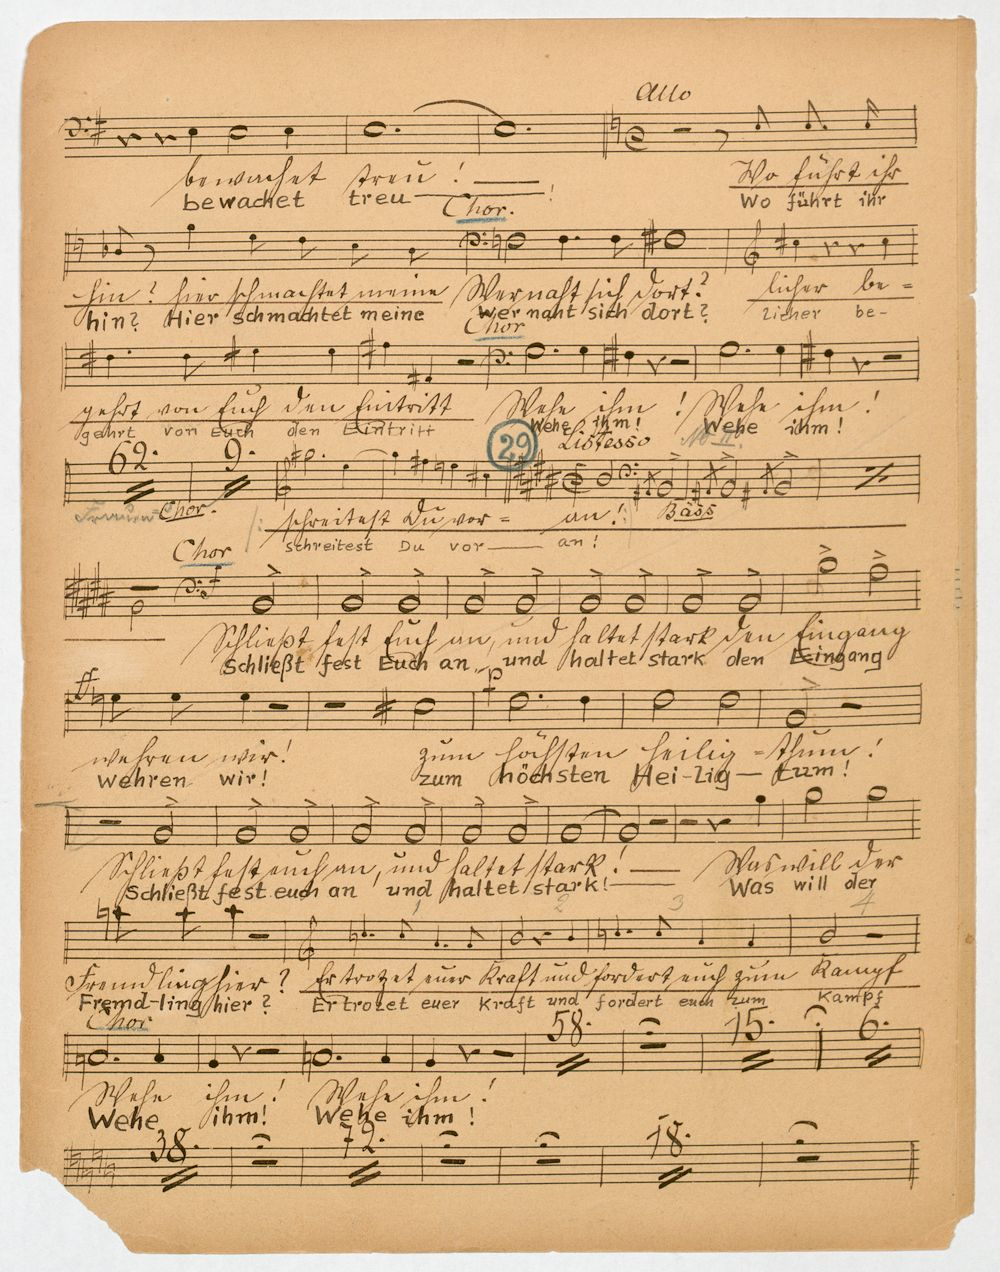 Allo
bewachet treu! Wo führt ihr
bewachet treu ! Wo führt ihr
Chor.
hin? hier schmachtet meine Wer naht sich dort? licher be-
hin? Hier schmachtet meine wer naht sich dort? licher be-
Chor
gehrt von Euch den Eintritt Wehe ihm! Wehe ihm!
gehrt von Euch den Eintritt Wehe ihm! Wehe ihm!
29 L'istesso
62. 9.
Frauen-Chor. schreitest Du vor- an! Bäss
Chor schreitest Du vor an!
f
Schließt fest Euch an, und haltet stark den Eingang
Schließt fest Euch an, und haltet stark den Eingang
ff p
wehren wir! zum höchsten heilig-thum!
wehren wir! zum höchsten Hei-lig-tum!
Schließt fest euch an, und haltet stark! Was will der
Schließt fest euch an und haltet stark! Was will der
1 2 3 4
Fremdling hier? Er trotzet eurer Kraft und fordert euch zum Kampf
Fremd-ling hier? Er trotzet euer Kraft und fordert euch zum Kampf
Chor 58. 15. 6.
Wehe ihm! Wehe ihm!
Wehe ihm! Wehe ihm!
38. 72. 18.